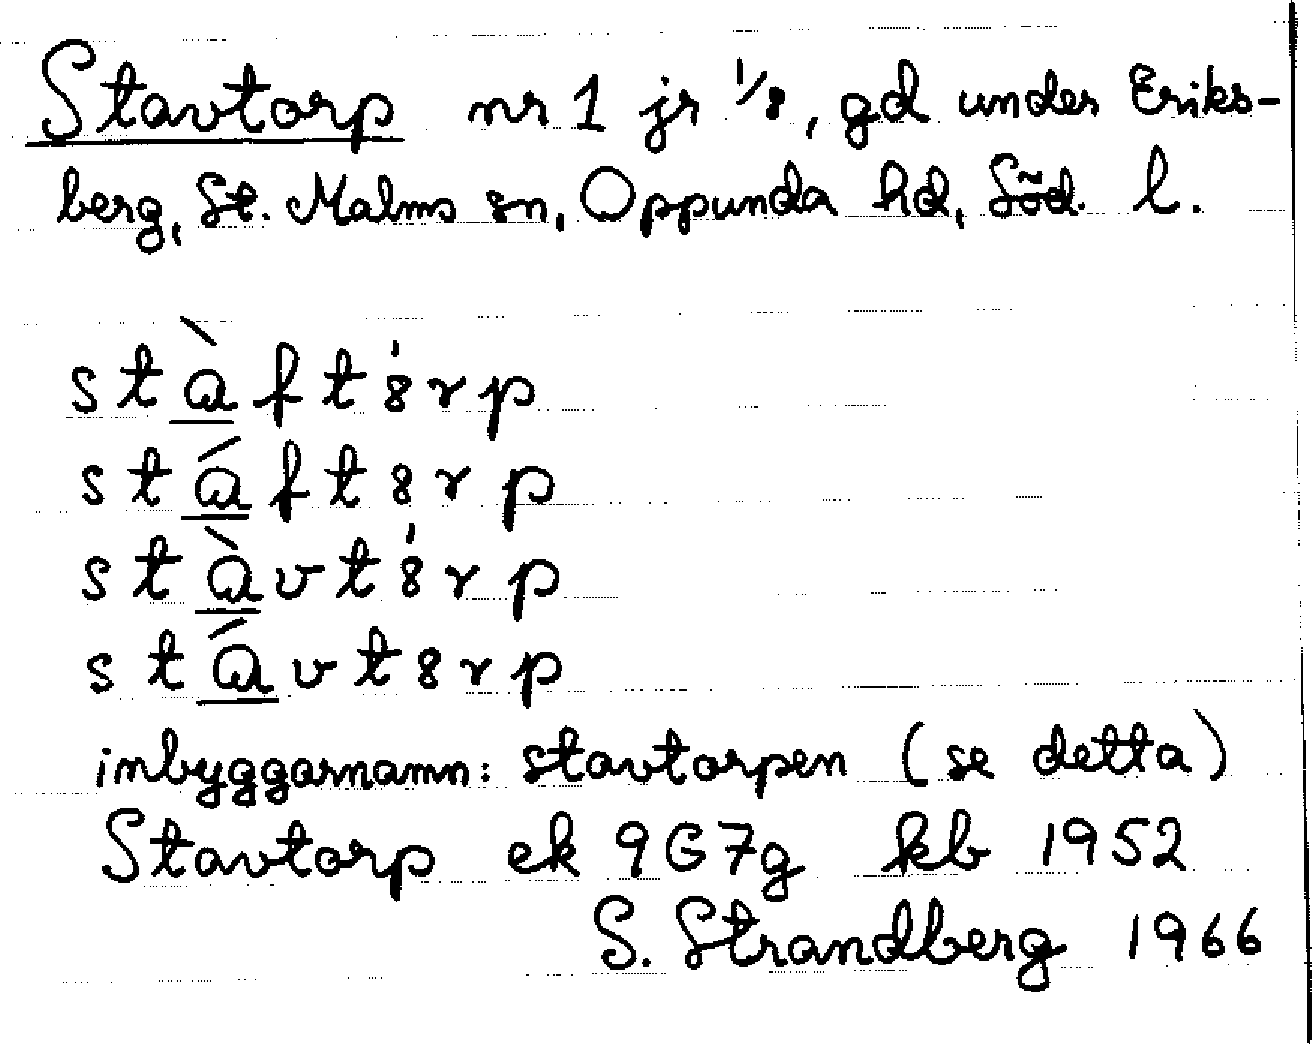 Stavtorp nr 1 jr 1/8, gd under Eriks-
berg, St. Malms sn, Oppunda hd, Söd. l.
stàft8̍rp
stáft8rp
stàvt8̍rp
stávt8rp
inbyggarnamn: stavtorpen (se detta)
Stavtorp ek 9G7g kb 1952
S. Strandberg 1966